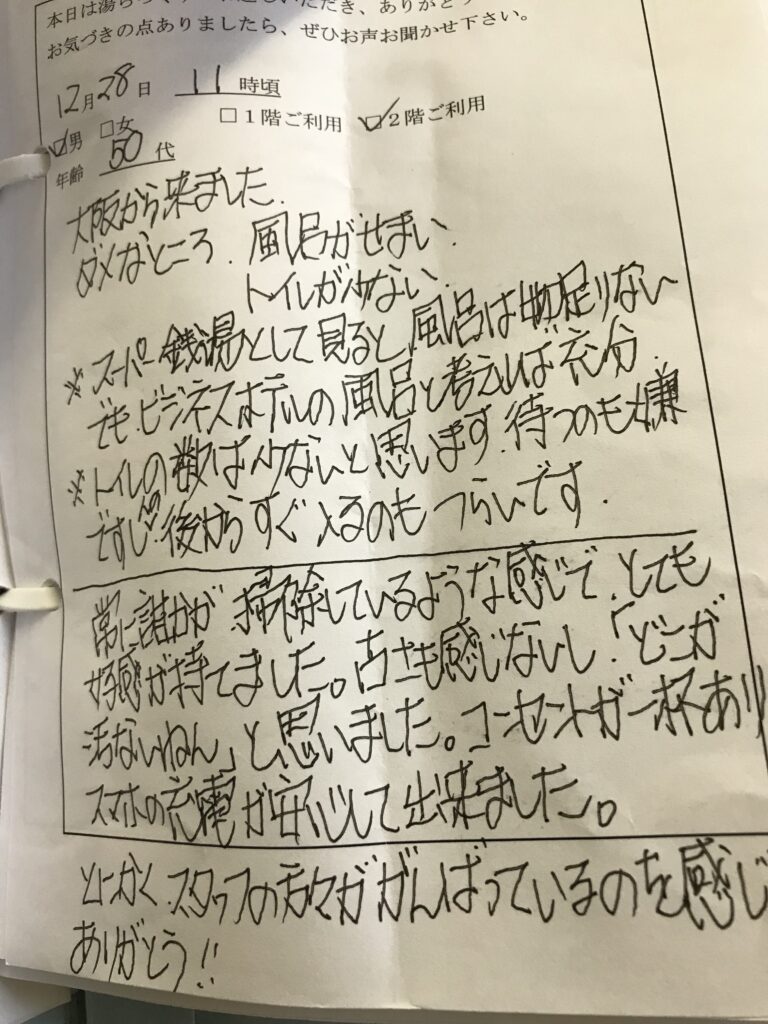 本日は湯ら
いただき、ありがとう
お気づきの点ありましたら、ぜひお声お聞かせ下さい。
12月28日 11時頃
☑男 □女 □1階ご利用 ☑2階ご利用
年齢 50代
大阪から来ました.
ダメなところ. 風呂がせまい.
トイレが少ない.
※スーパー銭湯として見ると、風呂は物足りない
でも、ビジネスホテルの風呂と考えれば充分.
※トイレの数は少ないと思います.待つのも嫌
ですし、後からすぐ入るのもつらいです.
常に誰かが掃除しているような感じで、とても
好感が持てました。古さも感じないし、「どこが
汚ないねん」と思いました。コンセントが一杯あり
スマホの充電が安心して出来ました。
とにかく、スタッフの方々ががんばっているのを感じ
ありがとう!!